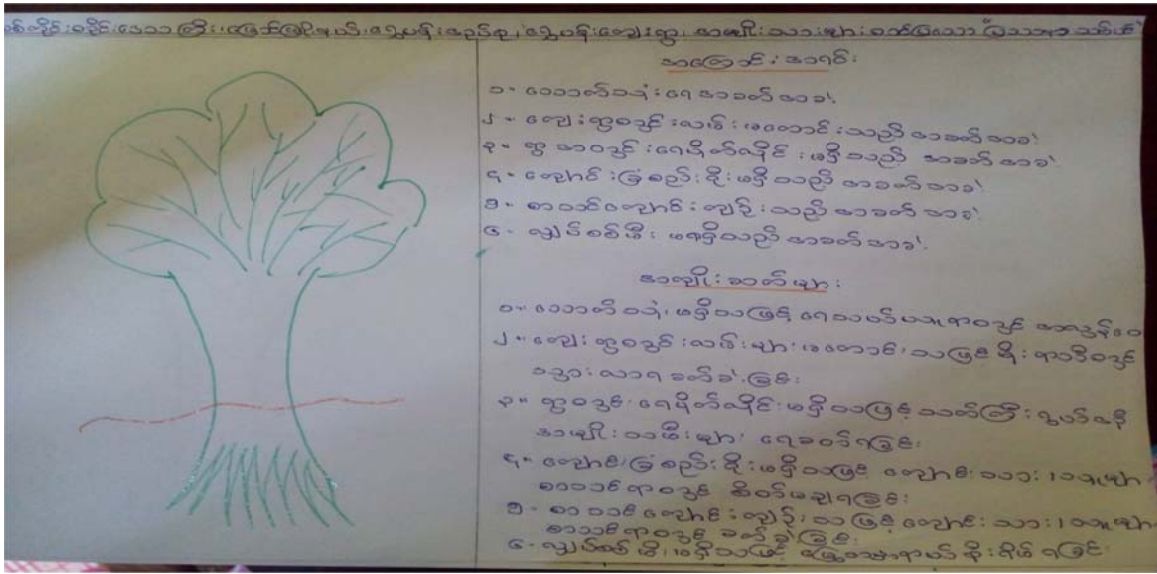 စစ်ကိုင်းတိုင်းဒေသကြီး၊ ရွှေဘိုခရိုင်၊ အမျိုးသားများ ဝတ်ပြုသော ပြဿနာ သစ်ပင်
အကြောင်းအရင်း
၁။ သောက်သုံးရေ အခက်အခဲ
၂။ ကျေးရွာတွင်းလမ်းမကောင်းသည် အခက်အခဲ
၃။ ရွာအတွင်းရေပိုက်လိုင်းမရှိသည် အခက်အခဲ
၄။ ကျောင်းခြံစည်းရိုးမရှိသည် အခက်အခဲ
၅။ စာသင်ကျောင်းကျဉ်းသည် အခက်အခဲ
၆။ လျှပ်စစ်မီးမရရှိသည် အခက်အခဲ
အကျိုးဆက်များ
၁။ သောက်သုံးရေမရှိသဖြင့် ရေသယ်ယူရာတွင် အလွန်ဝေး
၂။ ကျေးရွာတွင်းလမ်းများမကောင်းသဖြင့် မိုးရာသီတွင်
သွားလာရခက်ခဲခြင်း
၃။ ရွာတွင်းရေပိုက်လိုင်းမရှိသဖြင့် သက်ကြီးရွယ်အို
အမျိုးသမီးများ ရေခပ်ရခြင်း
၄။ ကျောင်းခြံစည်းရိုးမရှိသဖြင့် ကျောင်းသား၊သူများ
စာသင်ရာတွင် စိတ်မချရခြင်း
၅။ စာသင်ကျောင်းကျဉ်းသဖြင့် ကျောင်းသား၊သူများ
စာသင်ရာတွင် ခက်ခဲခြင်း
၆။ လျှပ်စစ်မီးမရှိသဖြင့် စိုးရိမ်ရခြင်း